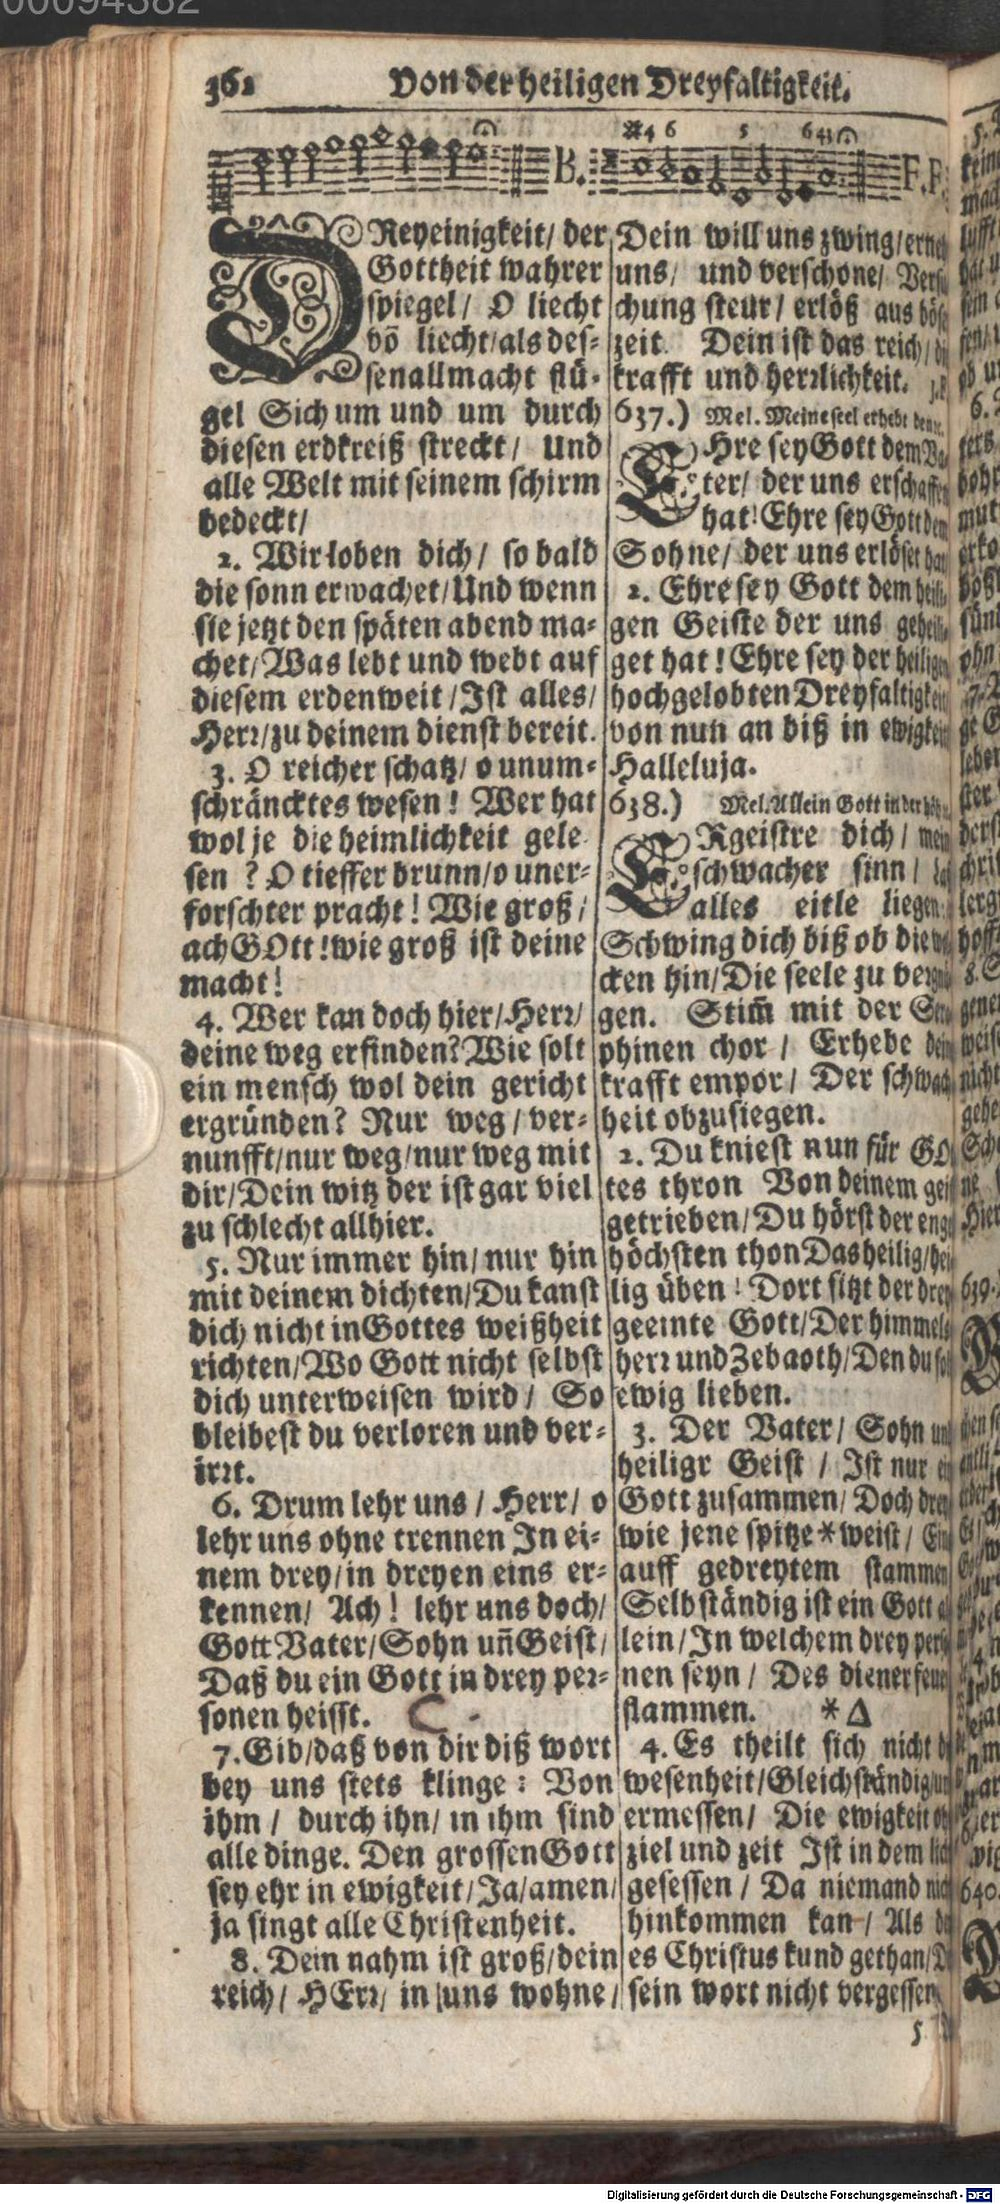 362 Von der heiligen Dreyfaltigkeit.
B. F.F.
DReyeinigkeit/ der
Gottheit wahrer
spiegel/ O liecht
võ liecht/als des-
sen allmacht flü-
gel Sich um und um durch
diesen erdkreiß streckt/ Und
alle Welt mit seinem schirm
bedeckt/
2. Wir loben dich/ so bald
die sonn erwachet/Und wenn
sie jetzt den späten abend ma-
chet/Was lebt und webt auf
diesem erdenweit/Ist alles/
Herr/zu deinem dienst bereit.
3. O reicher schatz/ o unum-
schräncktes wesen! Wer hat
wol je die heimlichkeit gele-
sen ? O tieffer brunn/o uner-
forschter pracht! Wie groß/
ach GOtt!wie groß ist deine
macht!
4. Wer kan doch hier/Herr/
deine weg erfinden?Wie solt
ein mensch wol dein gericht
ergründen? Nur weg/ ver-
nunfft/nur weg/nur weg mit
dir/Dein witz der ist gar viel
zu schlecht allhier.
5. Nur immer hin/nur hin
mit deinem dichten/Du kanst
dich nicht in Gottes weißheit
richten/Wo Gott nicht selbst
dich unterweisen wird/ So
bleibest du verloren und ver-
irrt.
6. Drum lehr uns/ Herr/ o
lehr uns ohne trennen In ei-
nem drey/in dreyen eins er-
kennen/ Ach! lehr uns doch/
Gott Vater/Sohn uñ Geist/
Daß du ein Gott in drey per-
sonen heisst.
7. Gib/daß von dir diß wort
bey uns stets klinge: Von
ihm/ durch ihn/ in ihm sind
alle dinge. Den grossen Gott
sey ehr in ewigkeit/Ja/amen/
ja singt alle Christenheit.
8. Dein nahm ist groß/dein
reich/ HErr/ in uns wohne/
Dein will uns zwing/
uns/ und verschone/
chung steur/ erlöß aus
zeit. Dein ist das reich/
krafft und herrlichkeit.
637.) Mel. Meine seel erhebt
EHre sey Gott dem
ter/ der uns erschaffen
hat! Ehre sey Gott dem
Sohne/ der uns erlöset hat
2. Ehre sey Gott dem heili-
gen Geiste der uns
get hat! Ehre sey der heiligen
hochgelobten Dreyfaltigkeit
von nun an biß in ewigkeit
Halleluja.
638.) Mel. Allein Gott in der
ERgeistre dich/ mein
schwacher sinn/
alles eitle liegen
Schwing dich biß ob die
cken hin/Die seele zu
gen. Stim̃ mit der
phinen chor/ Erhebe dein
krafft empor/ Der
heit obzusiegen.
2. Du kniest nun für
tes thron Von deinem
getrieben/Du hörst der
höchsten thon Das heilig/hei-
lig üben! Dort sitzt der
geeinte Gott/Der himmels
herr und Zebaoth/Den du
ewig lieben.
3. Der Vater/ Sohn
heiligr Geist/ Ist nur
Gott zusammen/ Doch
wie jene spitze * weist/
auff gedreytem stammen
Selbständig ist ein Gott
lein/In welchem drey
nen seyn/ Des diener
flammen. * Δ
4. Es theilt sich nicht
wesenheit/Gleichständig/
ermessen/ Die ewigkeit
ziel und zeit Ist in dem
gesessen/ Da niemand
hinkommen kan/ Als
es Christus kund gethan/
sein wort nicht vergessen.
5
639.
640.
Digitalisierung gefördert durch die Deutsche Forschungsgemeinschaft - DFG